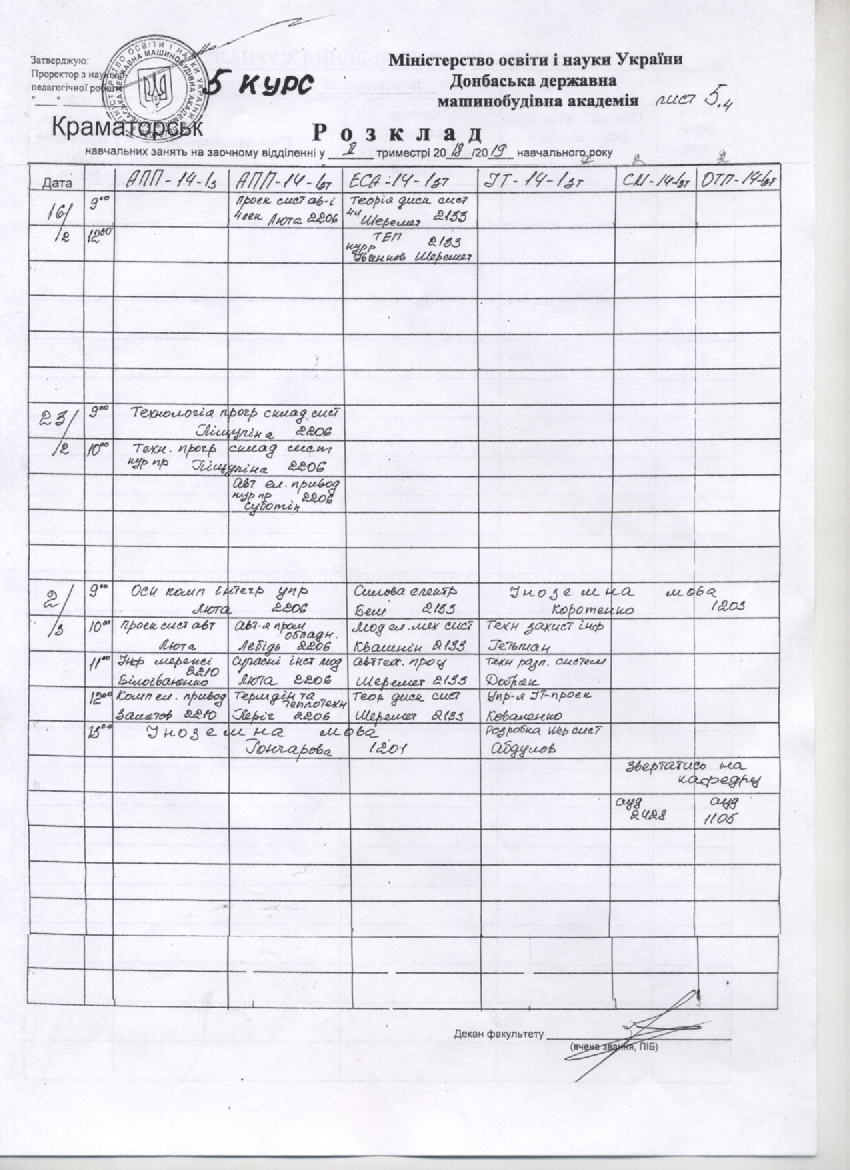 Затверджую:
Проректор з науково
педагогічної роботи
5 КУРС
Міністерство освіти і науки України
Донбаська державна
машинобудівна академія
лист 5.4
Краматорськ
Розклад
навчальних занять на заочному відділенні у II триместрі 2018/2019 навчального року
Дата АПП-14-1з АПП-14-1зт ЕСА-14-1зт ІТ-14-1зт СМ-14-1зт ОТП-14-1зт
16/2 9⁰⁰ Проек сист ав-ї Теорія диск сист
4 лек Люта 2206 4ч Шеремет 2133
12⁰⁰ ТЕП 2133
курр Шеремет
23/2 9⁰⁰ Технологія прогр склад сист
2206
10⁰⁰ Техн. прогр склад сист
кур пр 2206
Авт ел. привод
кур пр 2206
Суботін
2/3 9⁰⁰ Осн комп інтегр упр Силова електр Іноземна мова
Люта 2206 Беш 2133 Коротенко 1203
10⁰⁰ Проек сист авт Авт-я пром обладн. Мод ел. мех сист Техн захист інф
Люта Лебідь 2206 Квашнін 2133 Гетьман
11⁰⁰ Інф мережі 2210 Сучасні інст мод Автмех. проц Техн розп. систем
Білоіваненко Люта 2206 Шеремет 2133
12⁰⁰ Комп ел. привод Термдін та теплотехн Теор диск сист Упр-я ІТ-проек
2210 2206 Шеремет 2133 Коваленко
13⁰⁰ Іноземна мова Розробка WEB сист
Гончарова 1201 Абдулов
Звертатись на
кафедру
ауд ауд
2428 1105
Декан факультету
(вчене звання, ПІБ)